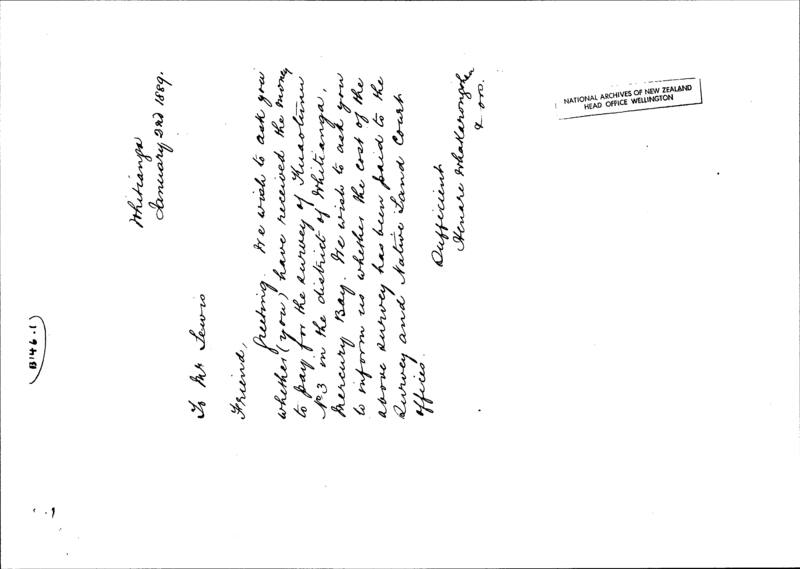 (B146.1)
Whitianga
January 2nd 1889.
To Mr Lewis
Friend,
Greeting. We wish to ask you
whether (you) have received the money
to pay for the survey of Kuaotunu
No 3 in the district of Whitianga,
Mercury Bay. We wish to ask you
to inform us whether the cost of the
above survey has been paid to the
Survey and Native Land Court
offices.
Sufficient
Henare Whakarongohau
& ors.
NATIONAL ARCHIVES OF NEW ZEALAND
HEAD OFFICE WELLINGTON